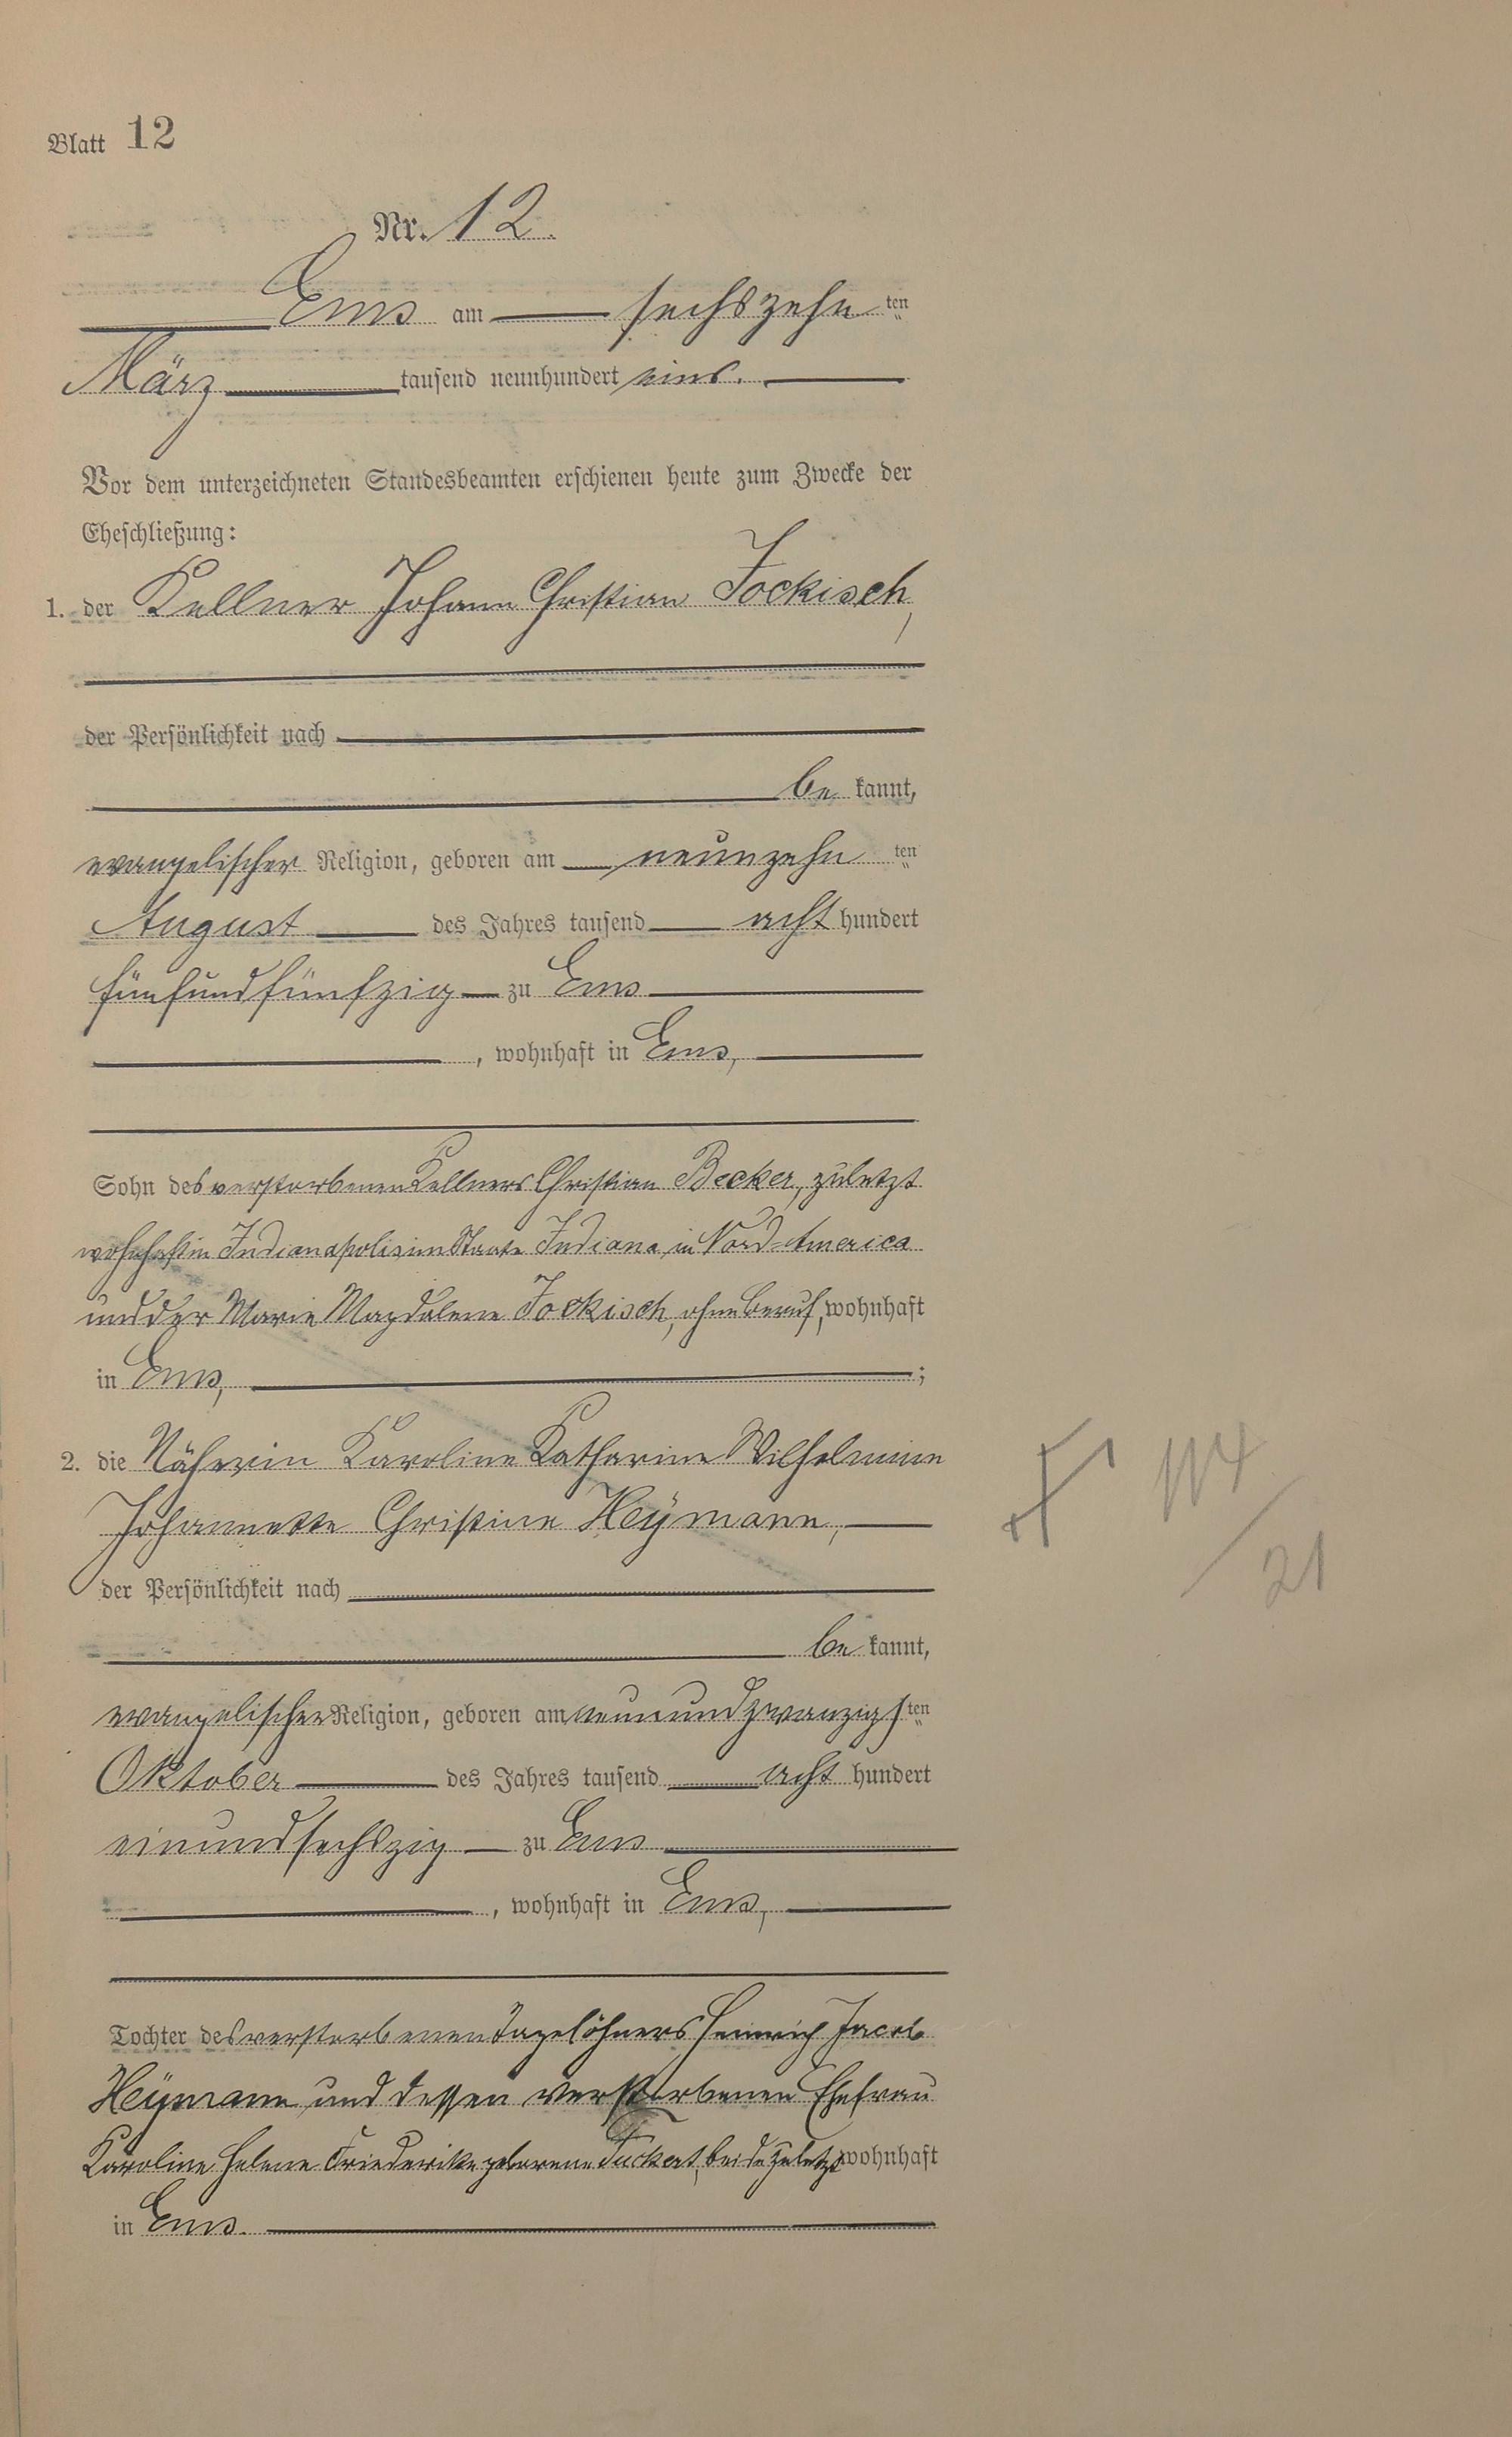 Blatt 12
Nr. 12.
Ems am sechszehn ten
März tausend neunhundert eins.
Vor dem unterzeichneten Standesbeamten erschienen heute zum Zwecke der
Eheschließung:
1. der Kellner Johann Christian Jockisch,
der Persönlichkeit nach
be kannt,
evangelischer Religion, geboren am neunzehn ten
August des Jahres tausend acht hundert
fünfundfünfzig zu Ems
, wohnhaft in Ems,
Sohn des verstorbenen Kellners Christian Becker, zuletzt
wohnhaft in Indianapolis im Staate Indiana in Nord-America
und der Marie Magdalene Jockisch, ohne Beruf, wohnhaft
in Ems, ;
2. die Näherin Karoline Katharine Wilhelmine
Johannette Christine Heÿmann,
der Persönlichkeit nach
be kannt,
evangelischer Religion, geboren am neunundzwanzigs ten
Oktober des Jahres tausend acht hundert
einundsechszig zu Ems
, wohnhaft in Ems,
Tochter des verstorbenen Tagelöhners Heinrich Jacob
Heÿmann und dessen verstorbenen Ehefrau
Karoline Helene Friederike geborene Tuckert, beide zuletzt wohnhaft
in Ems.
21